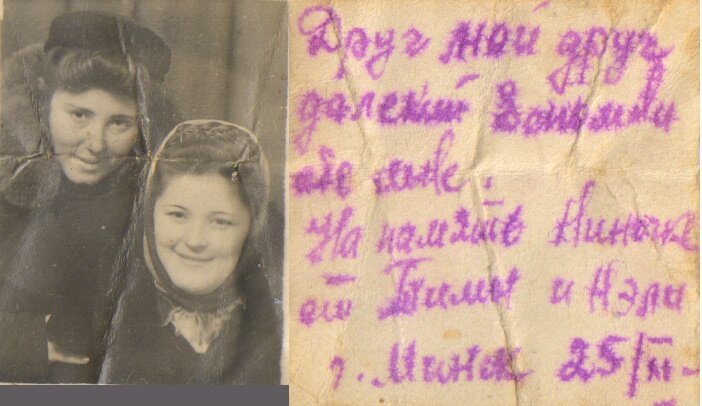 Друг мой друг
далекий вспомни
обо мне.
На память Ниночке
от Тимы и Нэли
г. Минск 25/II-